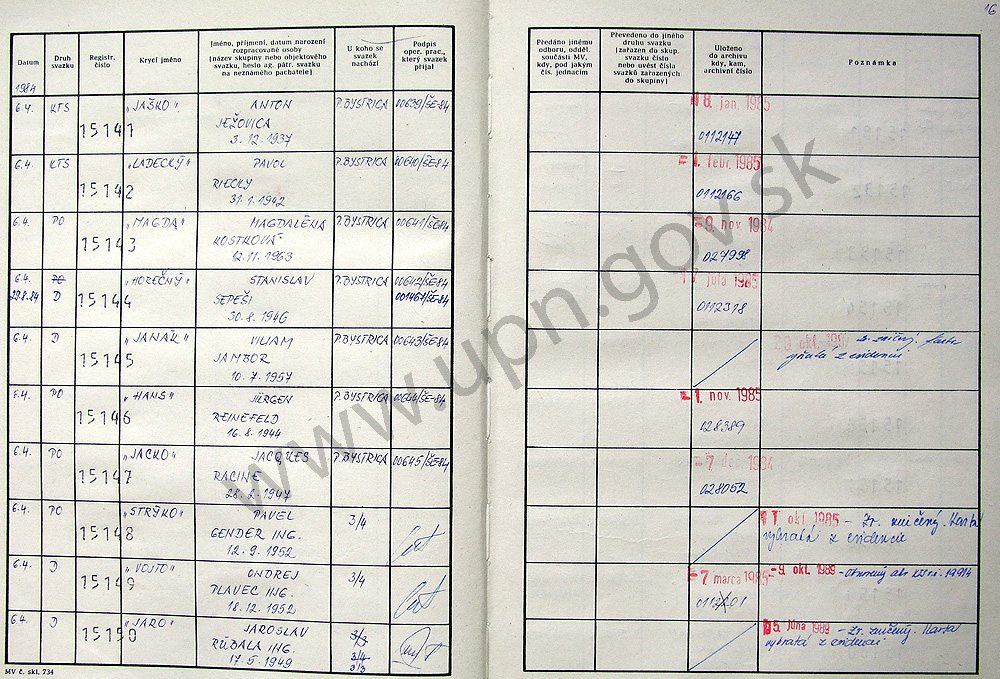 16
Datum
Druh svazku
Registr. číslo
Krycí jméno
Jméno, příjmení, datum narození rozpracované osoby (název skupiny nebo objektového svazku, heslo ag. pátr. svazku na neznámého pachatele)
U koho se svazek nachází
Podpis oper. prac., který svazek přijal
Předáno jinému odboru, odděl. součásti MV, kdy, pod jakým čís. jednacím
Převedeno do jiného druhu svazku (zařazen do skup. svazku číslo nebo uvést čísla svazků zařazených do skupiny)
Uloženo do archivu kdy, kam, archivní číslo
Poznámka
1984
6.4. KTS 15141 "JAŠKO" ANTON P. BYSTRICA 00639/ŠE-84 18. jan. 1985
JEŽOVICA 0112147
3. 12. 1937
6.4. KTS 15142 "LADECKÝ" PAVOL P. BYSTRICA 00640/ŠE-84 febr. 1985
RIECKY 0112166
31. 1. 1942
6.4. PO 15143 "MAGDA" MAGDALÉNA P. BYSTRICA 00641/ŠE-84 -9. nov. 1984
KOSTKOVÁ 027998
12. 11. 1963
6.4. PO 15144 "HOREČNÝ" STANISLAV P. BYSTRICA 00642/ŠE-84 17. júla 1985
29.8.84 D SEPEŠI 001461/ŠE-84 0112318
30. 8. 1946
6.4. D 15145 "JANÁK" VILIAM P. BYSTRICA 00643/ŠE-84 okt.
JAMBOR z evidencii
10. 7. 1957
6.4. PO 15146 "HANS" JÜRGEN P. BYSTRICA 00644/ŠE-84 -1. nov. 1985
REINEFELD 028389
16. 8. 1944
6.4. PO 15147 "JACKO" JACQUES P. BYSTRICA 00645/ŠE-84 -7. 1984
RACINE 028052
28. 2. 1947
6.4. PO 15148 "STRÝKO" PAVEL 3/4 okt. 1985 - Zv. zničený. Karta
GENDER ING. vybratá z evidencie
12. 9. 1952
6.4. D 15149 "VOJTO" ONDREJ 3/4 -7. marca 1985 -9. okt. 1989
PLAVEC ING. 0112201
18. 12. 1952
6.4. D 15150 "JARO" JAROSLAV 3/3 5. júna 1989 - Zv. zničený. Karta
RÚBALA ING. 3/4 vybratá z evidencii
17. 5. 1949 3/3
MV č. skl. 734
www.upn.gov.sk